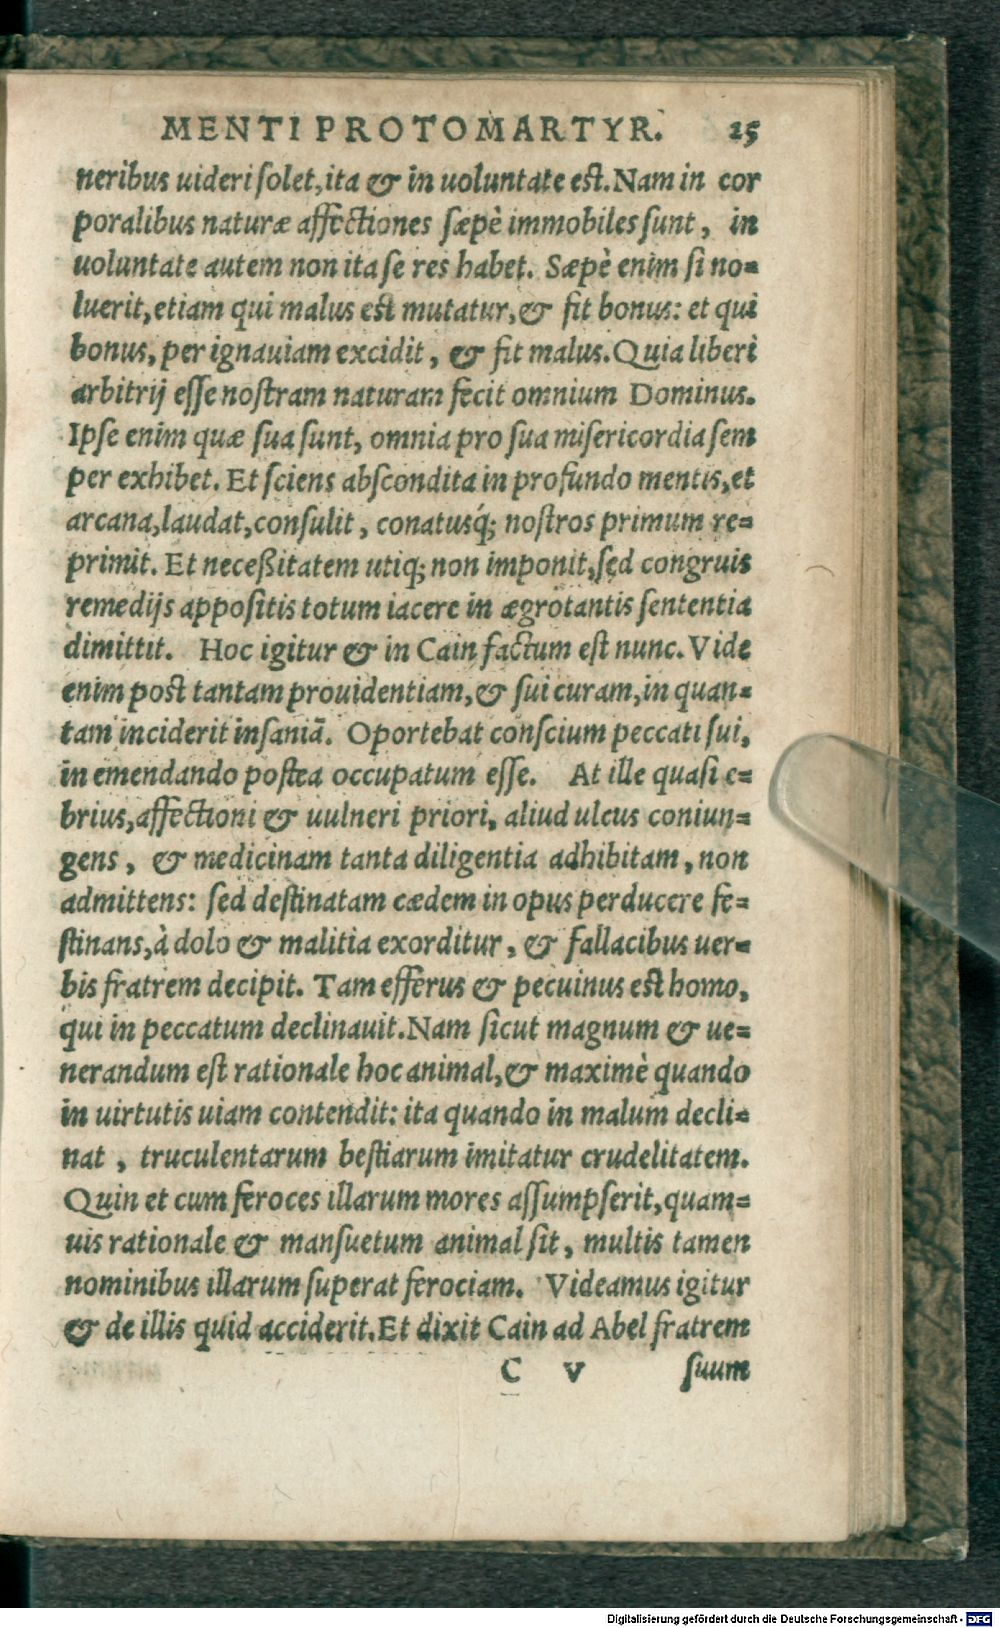 MENTI PROTOMARTYR. 25
neribus uideri solet, ita & in uoluntate est. Nam in cor
poralibus naturæ affectiones sæpè immobiles sunt, in
uoluntate autem non ita se res habet. Sæpè enim si no=
luerit, etiam qui malus est mutatur, & fit bonus: et qui
bonus, per ignauiam excidit, & fit malus. Quia liberi
arbitrij esse nostram naturam fecit omnium Dominus.
Ipse enim quæ sua sunt, omnia pro sua misericordia sem
per exhibet. Et sciens abscondita in profundo mentis, et
arcana, laudat, consulit, conatusq́; nostros primum re=
primit. Et neceßitatem utiq; non imponit, sed congruis
remedijs appositis totum iacere in ægrotantis sententia
dimittit. Hoc igitur & in Cain factum est nunc. Vide
enim post tantam prouidentiam, & sui curam, in quan=
tam inciderit insaniã. Oportebat conscium peccati sui,
in emendando postea occupatum esse. At ille quasi e=
brius, affectioni & uulneri priori, aliud ulcus coniun=
gens, & medicinam tanta diligentia adhibitam, non
admittens: sed destinatam cædem in opus perducere fe=
stinans, à dolo & malitia exorditur, & fallacibus uer=
bis fratrem decipit. Tam efferus & pecuinus est homo,
qui in peccatum declinauit. Nam sicut magnum & ue=
nerandum est rationale hoc animal, & maximè quando
in uirtutis uiam contendit: ita quando in malum decli=
nat, truculentarum bestiarum imitatur crudelitatem.
Quin et cum feroces illarum mores assumpserit, quam=
uis rationale & mansuetum animal sit, multis tamen
nominibus illarum superat ferociam. Videamus igitur
& de illis quid acciderit. Et dixit Cain ad Abel fratrem
C V suum
Digitalisierung gefördert durch die Deutsche Forschungsgemeinschaft - DFG